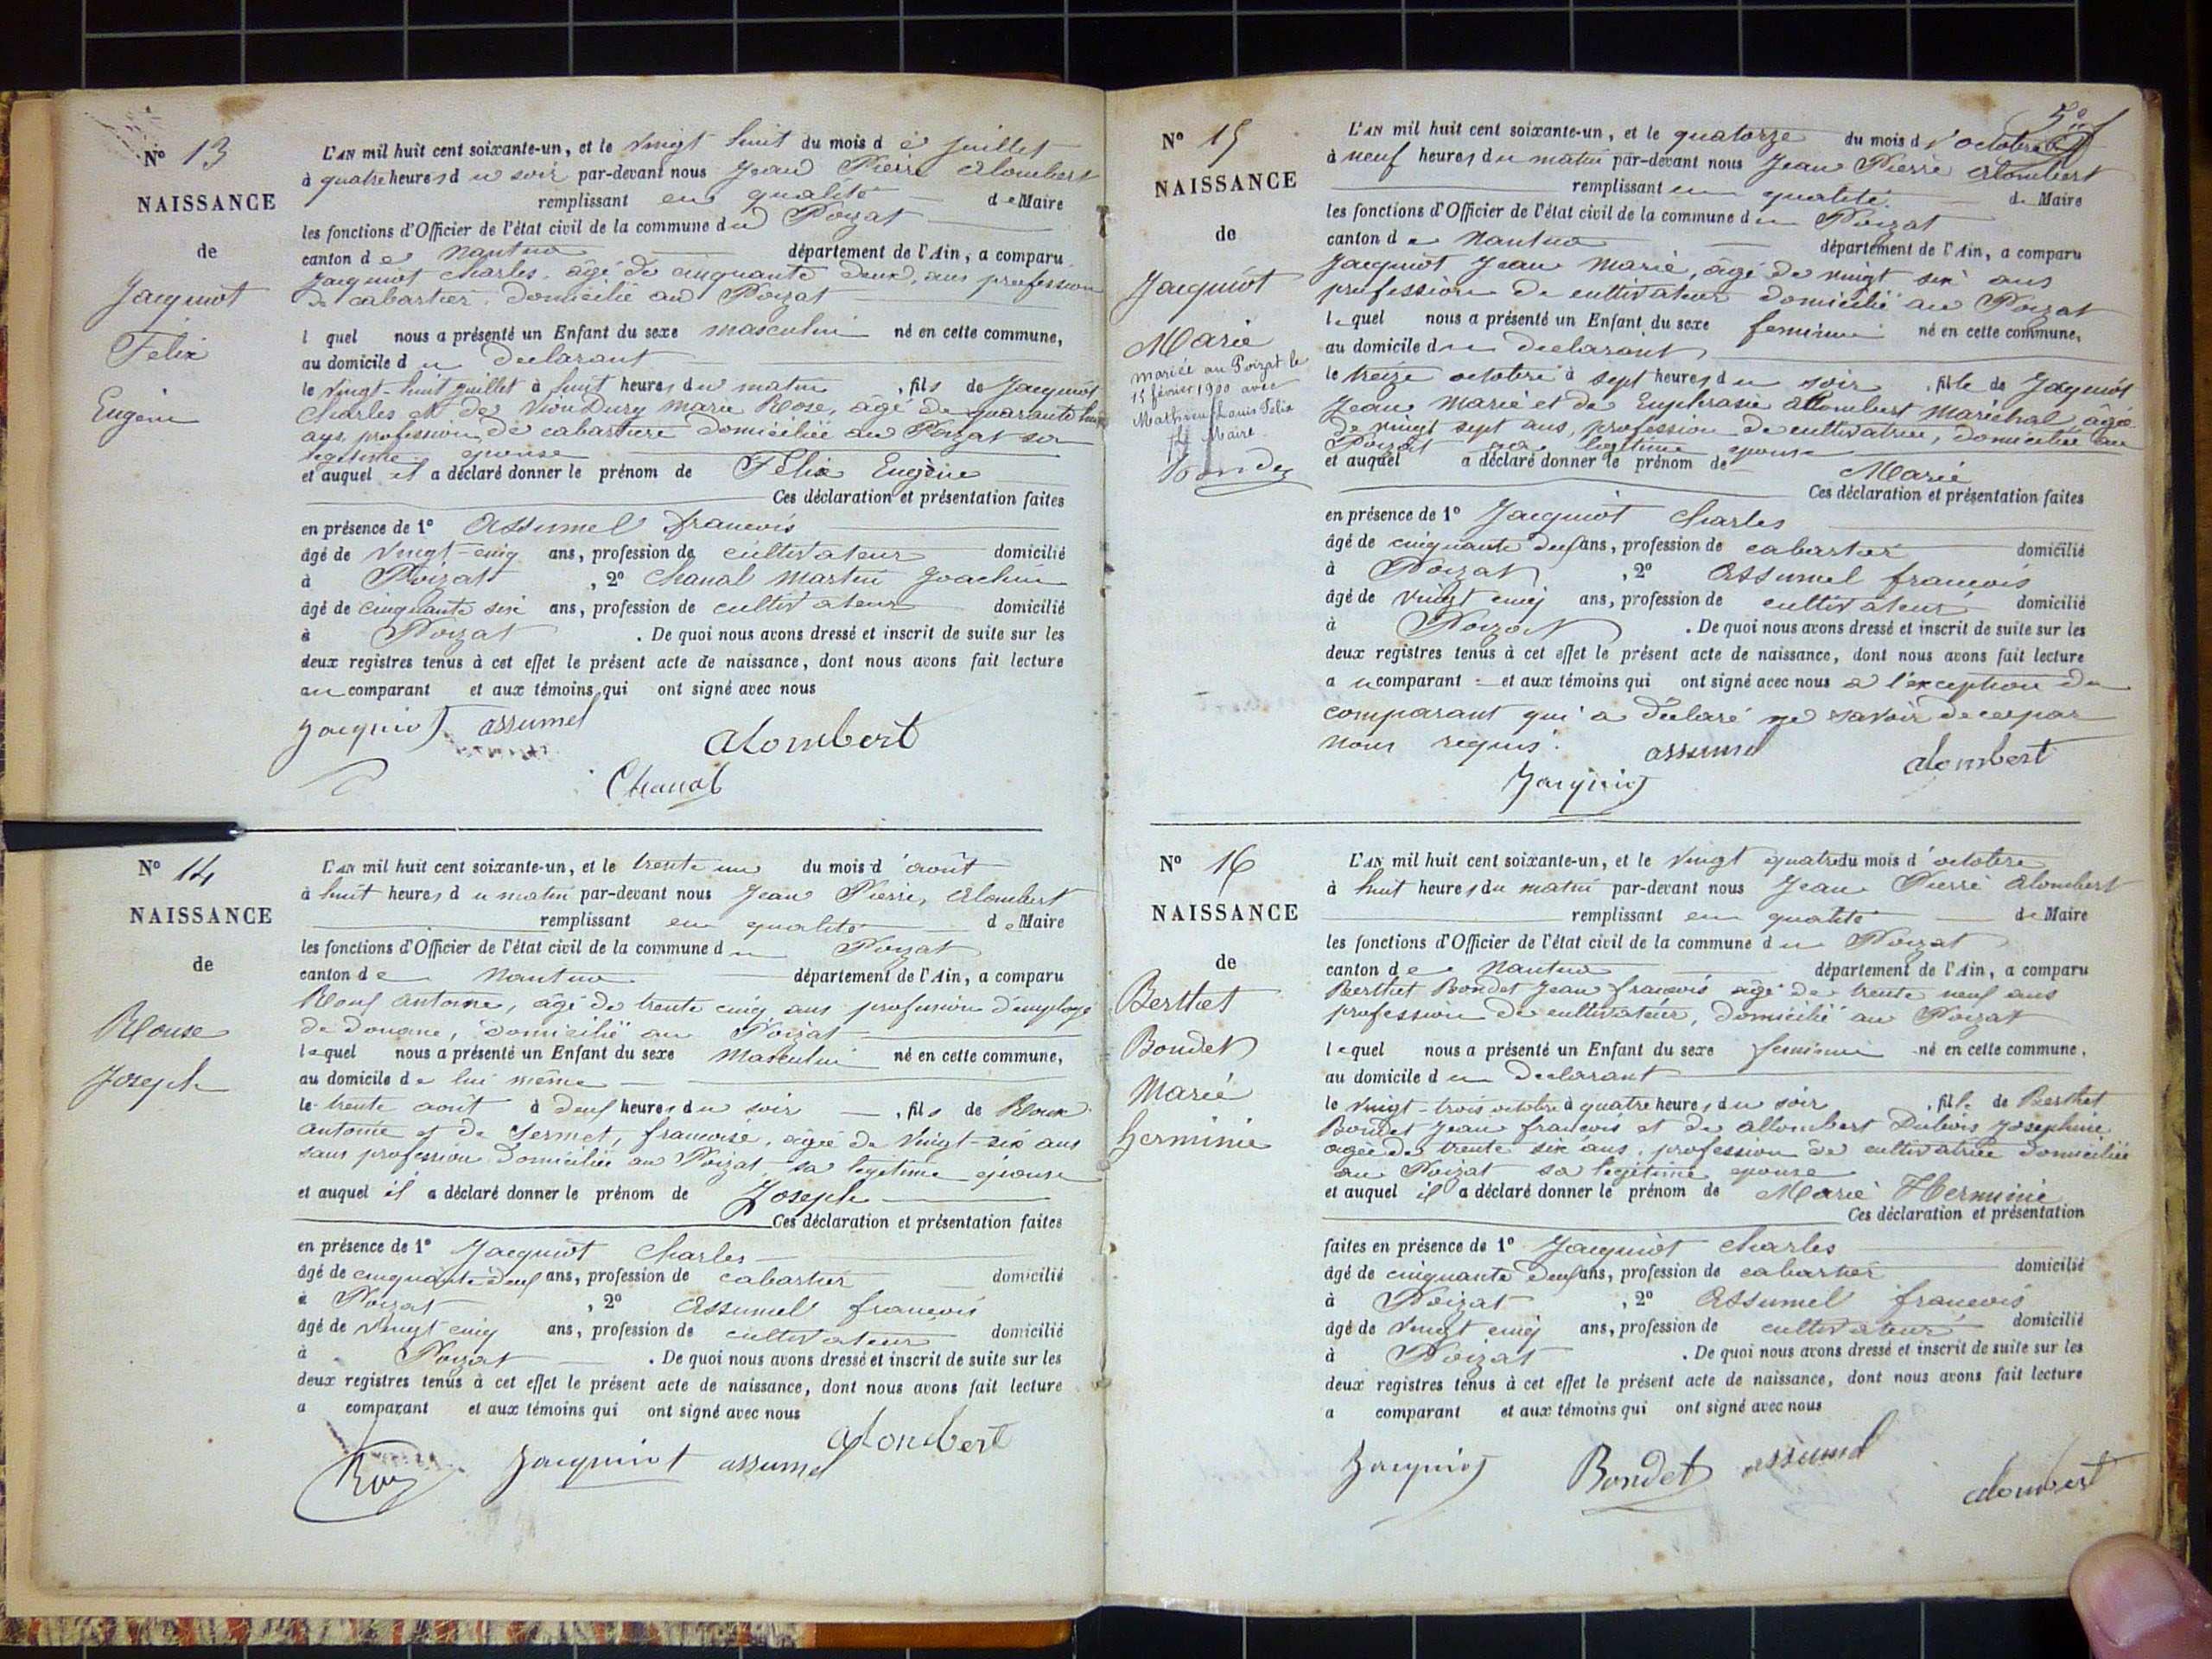 N° 13
NAISSANCE
de
Jacquiot
Félix
Eugène
L'AN mil huit cent soixante-un, et le vingt huit du mois d e juillet
à quatre heures d u soir par-devant nous Jean Pierre Alombert
remplissant en qualité d e Maire
les fonctions d'Officier de l'état civil de la commune d u Poizat
canton d e Nantua département de l'Ain, a comparu
Jacquiot Charles, âgé de cinquante deux ans profession
de cabartier, domicilié au Poizat
l quel nous a présenté un Enfant du sexe masculin né en cette commune,
au domicile d u declarant
le vingt-huit juillet à huit heures du matin, fils de Jacquiot
Charles et de Vion Dury Marie Rose, âgé de quarante huit
ans, profession de cabartiere domiciliée au Poizat son
legitime epouse
et auquel il a déclaré donner le prénom de Félix Eugène
Ces déclaration et présentation faites
en présence de 1° Assumel francois
âgé de vingt-cinq ans, profession de cultivateur domicilié
à Poizat, 2° Chanal Martin Joachin
âgé de cinquante six ans, profession de cultivateur domicilié
à Poizat. De quoi nous avons dressé et inscrit de suite sur les
deux registres tenus à cet effet le présent acte de naissance, dont nous avons fait lecture
au comparant et aux témoins qui ont signé avec nous
Jacquiot assumel
alombert
Chanal
N° 14
NAISSANCE
de
Rouse
Joseph
L'AN mil huit cent soixante-un, et le trente un du mois d'août
à huit heures d u matin par-devant nous Jean Pierre Alombert
remplissant en qualité d e Maire
les fonctions d'Officier de l'état civil de la commune d u Poizat
canton d e Nantua département de l'Ain, a comparu
antoine, âgé de trente cinq ans profession d'employé
de douane, domicilié au Poizat
lequel nous a présenté un Enfant du sexe Masculin né en cette commune,
au domicile de lui même
le trente août à deux heures du soir, fils de Roux
antoine et de Sermet, francoise, âgée de vingt-six ans
sans profession domiciliée au Poizat, sa legitime épouse
et auquel il a déclaré donner le prénom de Joseph
Ces déclaration et présentation faites
en présence de 1° Jacquiot Charles
âgé de cinquante deux ans, profession de cabartier domicilié
à Poizat, 2° Assumel francois
âgé de vingt cinq ans, profession de cultivateur domicilié
à Poizat. De quoi nous avons dressé et inscrit de suite sur les
deux registres tenus à cet effet le présent acte de naissance, dont nous avons fait lecture
a comparant et aux témoins qui ont signé avec nous
alombert
Roux Jacquiot assumel
N° 15
NAISSANCE
de
Jacquiot
Marie
mariée au Poizat le
15 février 1900 avec
Mathieu Louis Félix
Le Maire
L'AN mil huit cent soixante-un, et le quatorze du mois d'octobre
à neuf heures du matin par-devant nous Jean Pierre Alombert
remplissant en qualité de Maire
les fonctions d'Officier de l'état civil de la commune du Poizat
canton de Nantua département de l'Ain, a comparu
Jacquiot Jean Marie, âgé de vingt six ans
profession de cultivateur domicilié au Poizat
lequel nous a présenté un Enfant du sexe feminin né en cette commune,
au domicile du declarant
le treize octobre à sept heures du soir, fille de Jacquiot
Jean Marie et de Euphrasie Allombert Maréchal âgée
de vingt sept ans, profession de cultivatrice, domiciliée au
Poizat sa legitime epouse
et auquel a déclaré donner le prénom de Marie
Ces déclaration et présentation faites
en présence de 1° Jacquiot Charles
âgé de cinquante deux ans, profession de cabartier domicilié
à Poizat, 2° Assumel francois
âgé de vingt cinq ans, profession de cultivateur domicilié
à Poizat. De quoi nous avons dressé et inscrit de suite sur les
deux registres tenus à cet effet le présent acte de naissance, dont nous avons fait lecture
au comparant et aux témoins qui ont signé avec nous a l'exception du
comparant qui a déclaré ne savoir de ce par
nous requis.
assumel alombert
Jacquiot
N° 16
NAISSANCE
de
Berthet
Bondet
Marie
herminie
L'AN mil huit cent soixante-un, et le vingt quatre du mois d'octobre
à huit heures du matin par-devant nous Jean Pierre Alombert
remplissant en qualité de Maire
les fonctions d'Officier de l'état civil de la commune du Poizat
canton de Nantua département de l'Ain, a comparu
Berthet Bondet Jean francois âgé de trente neuf ans
profession de cultivateur, domicilié au Poizat
lequel nous a présenté un Enfant du sexe feminin né en cette commune,
au domicile du declarant
le vingt-trois octobre à quatre heures du soir, fille de Berthet
Bondet Jean francois et de allombert Dubois Josephine
agée de trente six ans, profession de cultivatrice domiciliée
au Poizat sa legitime epouse
et auquel il a déclaré donner le prénom de Marie Herminie
Ces déclaration et présentation
faites en présence de 1° Jacquiot Charles
âgé de cinquante deux ans, profession de cabartier domicilié
à Poizat, 2° Assumel francois
âgé de vingt cinq ans, profession de cultivateur domicilié
à Poizat. De quoi nous avons dressé et inscrit de suite sur les
deux registres tenus à cet effet le présent acte de naissance, dont nous avons fait lecture
a comparant et aux témoins qui ont signé avec nous
Jacquiot Bondet assumel
alombert